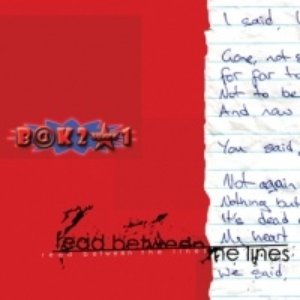 I said,
B@K2★1
Gone, not s
for far to
Not to be
And now
You said,
Not again
Nothing but
It's dead
My heart
We said,
read between the lines
read between the lines